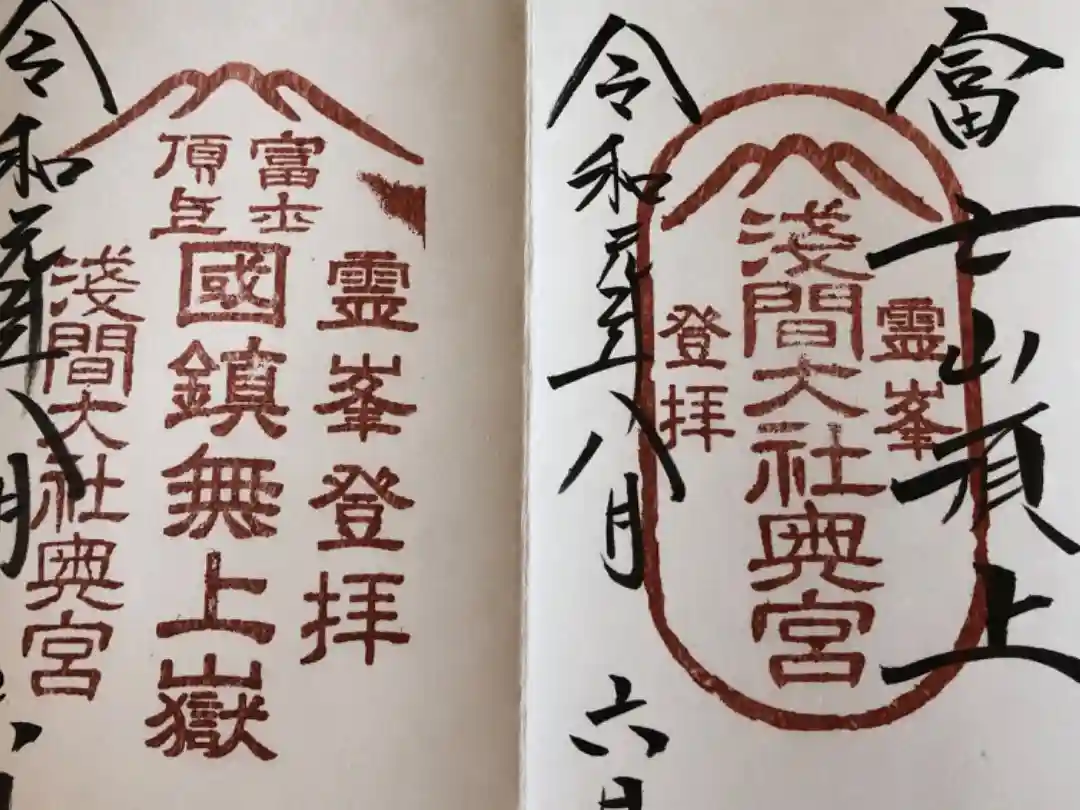 富士山頂上
霊峯登拝
淺間大社奥宮
令和元年八月六日
霊峯登拝
富士頂上
國鎮無上嶽
淺間大社奥宮
令和元年八月